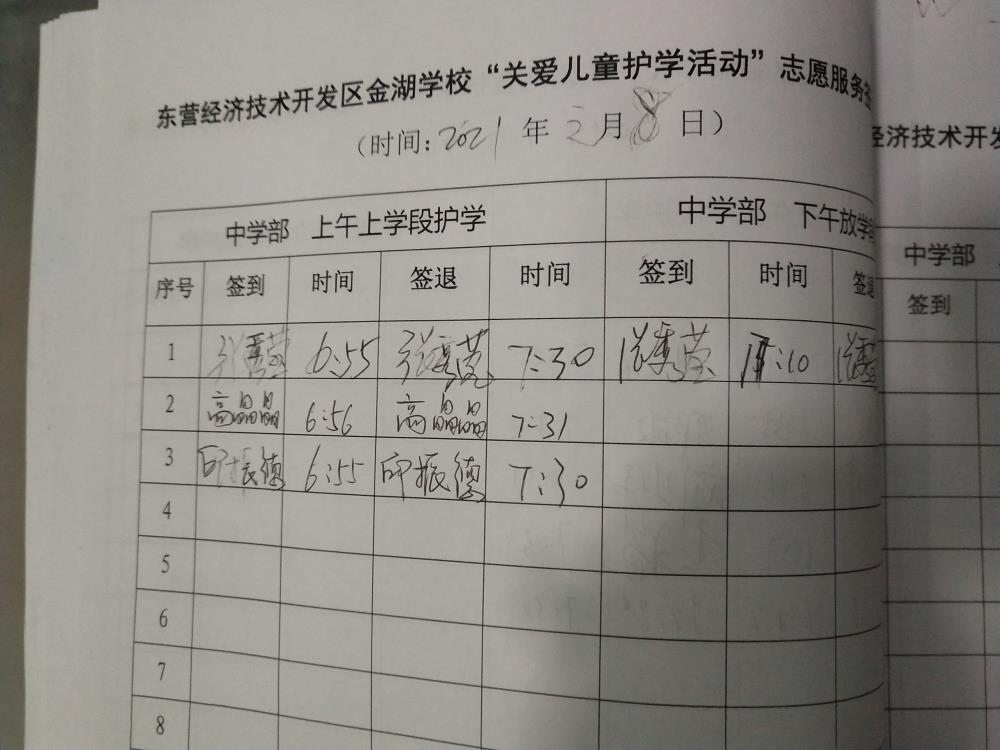 东营经济技术开发区金湖学校“关爱儿童护学活动”志愿服务签
（时间：2021年2月8日）
中学部 上午上学段护学 中学部 下午放学
序号 签到 时间 签退 时间 签到 时间 签退
1 张秀莹 6:55 张秀莹 7:30 张秀莹 :10
2 高晶晶 6:56 高晶晶 7:31
3 印振德 6:55 印振德 7:30
4
5
6
7
8
经济技术开发
中学部
签到